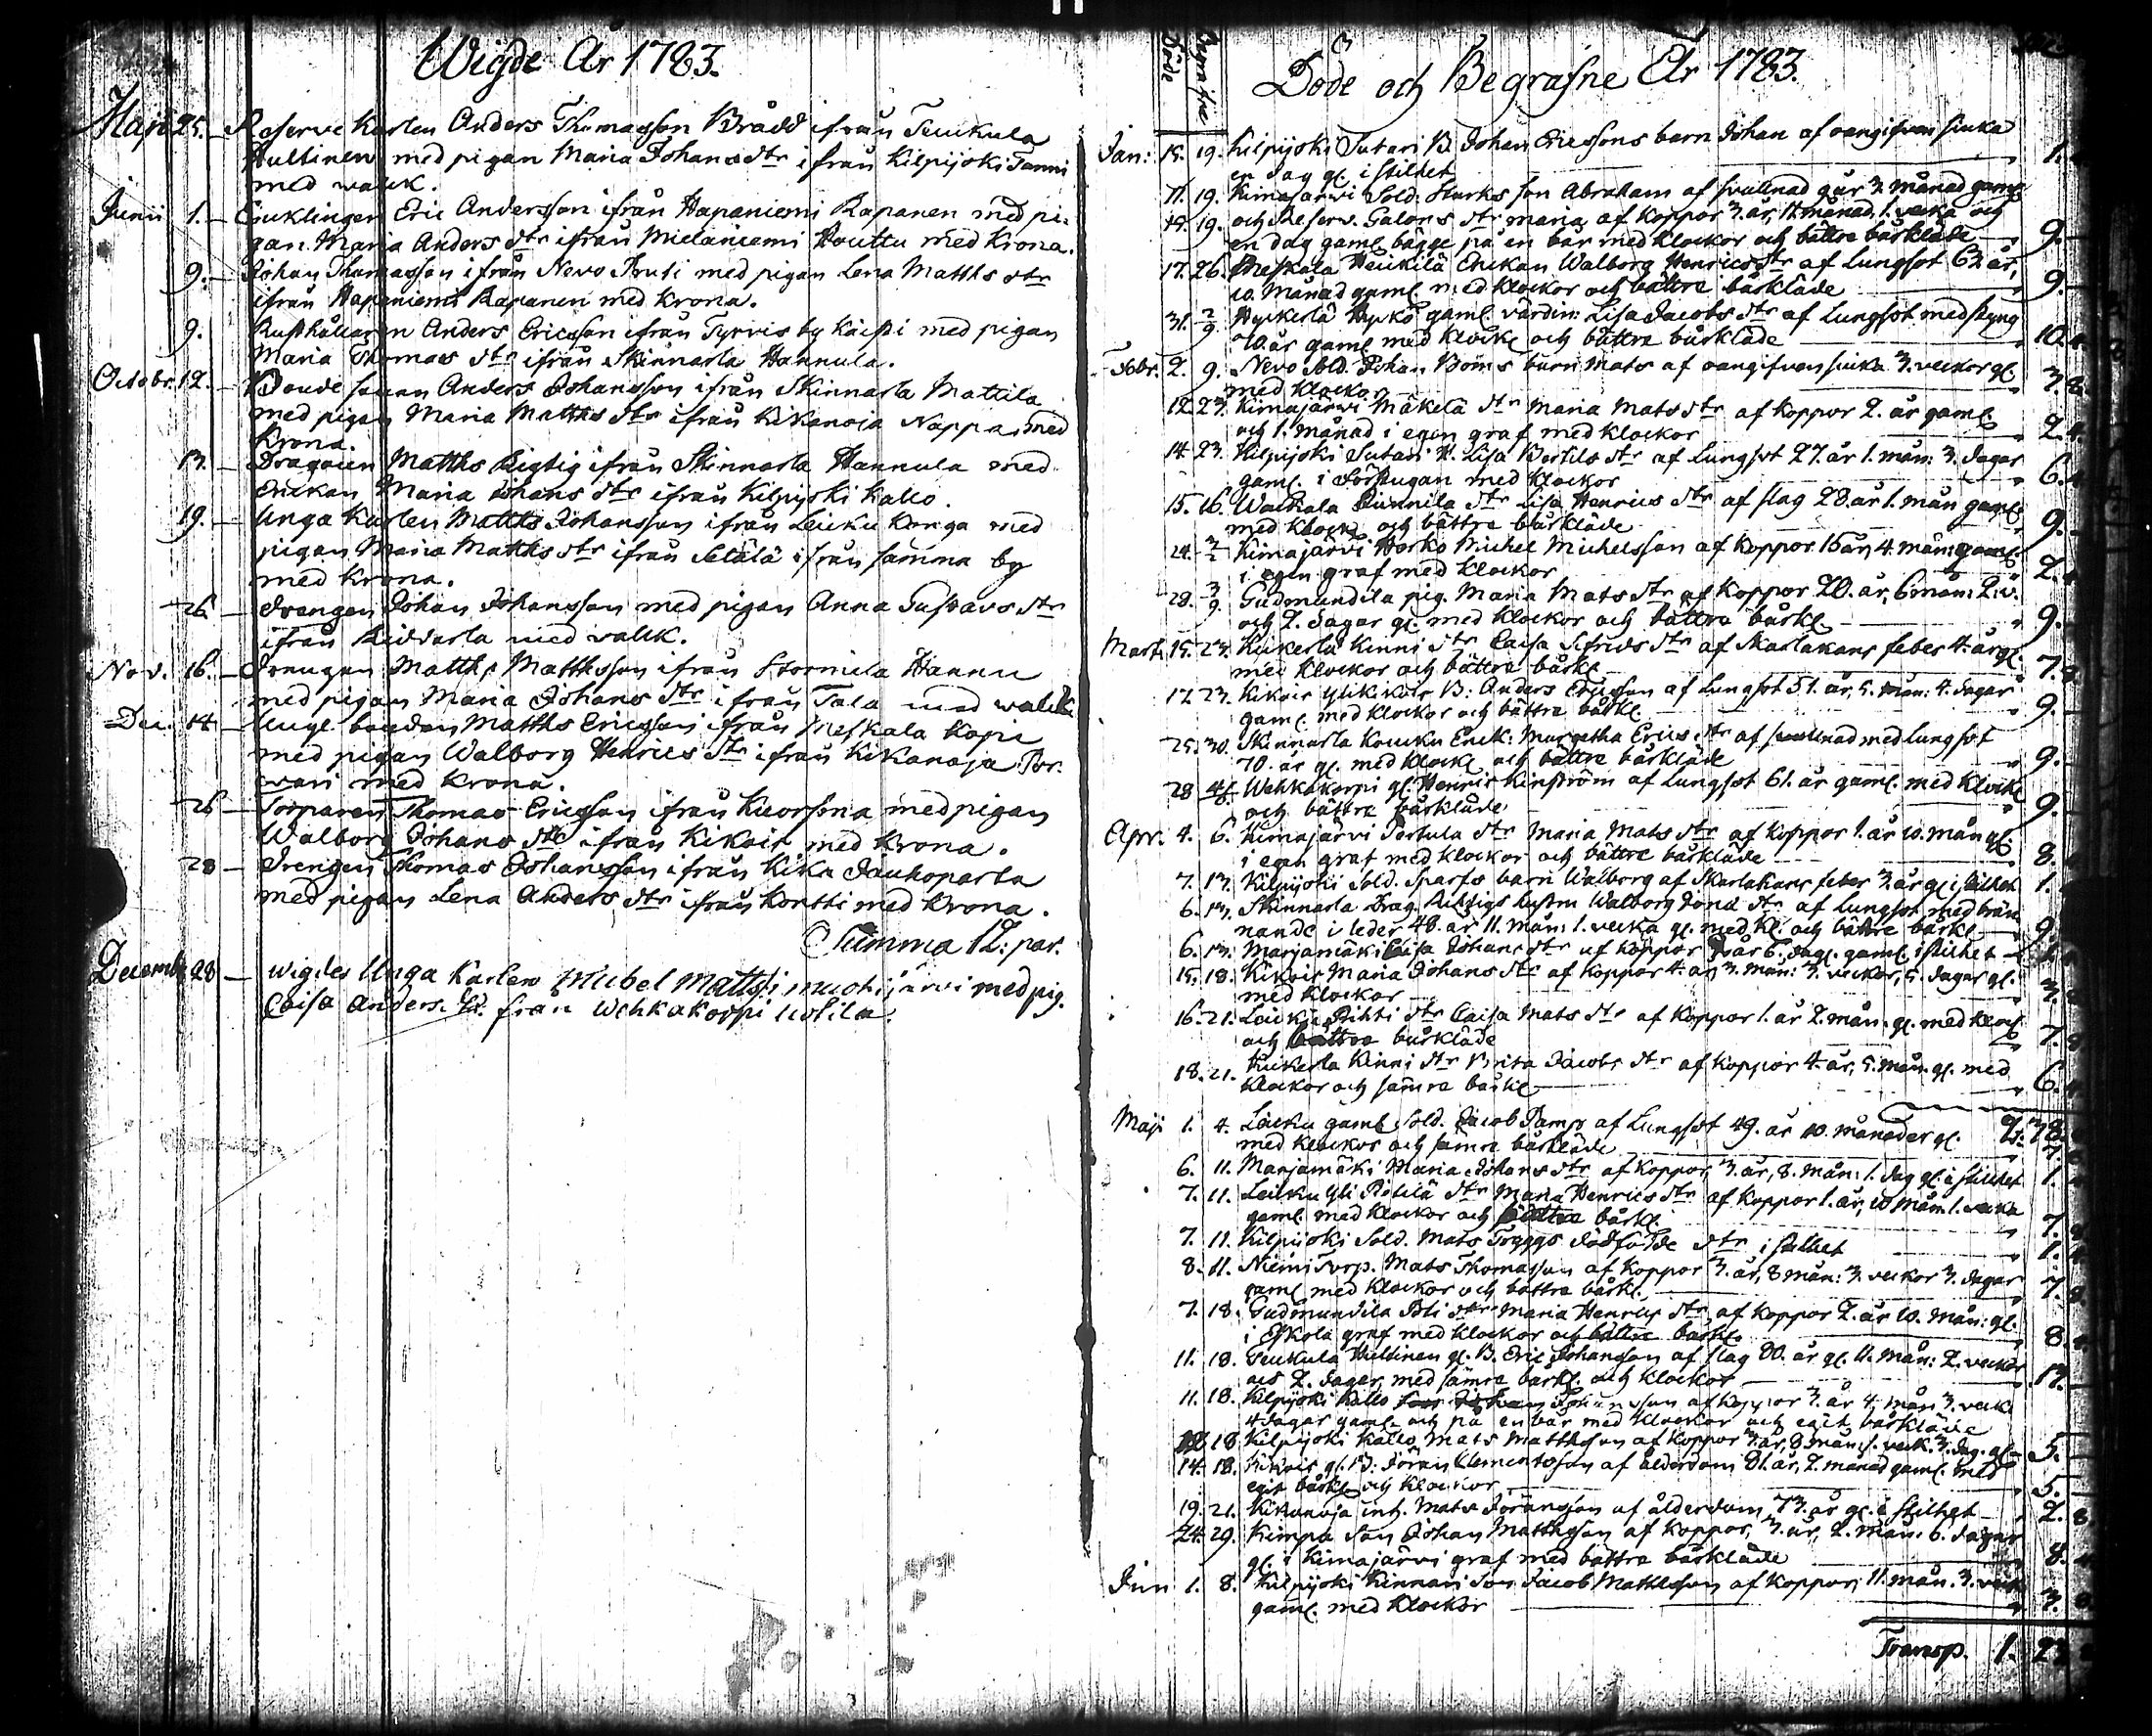 Wigde År 1783.
Maji 25. Reserve Karlen Anders Thomasson Brådd ifrån Teukula
Hultinen med pigan Maria Johans dtr ifrån Kilpijoki Tanni
med walck.
Junii 1. Enklingen Eric Andersson ifrån Hapaniemi Rapanen med pi-
gan Maria Anders dtr ifrån Mielaniemi Houttu med Krona.
9. Johan Thomasson ifrån Nevo Pruti med pigan Lena Matths dtr
ifrån Hapaniemi Rapanen med Krona.
9. Rusthållaren Anders Ericsson ifrån Tyrvis by Kaisti med pigan
Maria Thomas dtr ifrån Skinnarla Hannula.
Octobr. 12. Bonde sonen Anders Johansson ifrån Skinnarla Mattila
med pigan Maria Matths dtr ifrån Kikanoia Nappa, med
Krona.
13. Dragonen Matths Rigtig ifrån Skinnarla Hannula med
Enckan Maria Johans dtr ifrån Kilpijoki Kallo.
19. Unga Karlen Matths Johansson ifrån Leicku Kanga med
pigan Maria Matths dtr ifrån Sélälä ifrån samma by
med Krona.
26. Drengen Johan Johansson med pigan Anna Gustavs dtr
ifrån Riddarla med walck.
Nov. 16. Drengen Matths Matthsson ifrån Stormila Hannu
med pigan Maria Johans dtr ifrån Tala med walck
Dec. 14. Ungl. bonden Matths Ericsson ifrån Meskala Kopi
med pigan Walborg Henrics dtr ifrån Kikanoja Por-
wari med Krona.
26. Torparen Thomas Ericsson ifrån Kuorsona med pigan
Walborg Johans dtr ifrån Kikois med Krona.
28. Drengen Thomas Johansson ifrån Kika Jauhoparta
med pigan Lena Anders dtr ifrån Kontti med Krona.
Summa 12: par.
Decemb 28. wigdes Unga Karlen Michel Matts: i muoti järvi med pig.
Caisa Anders. Dr. från Wehkakorpi Ustila.
Döde
Begrafne
Döde och Begrafne År 1783.
Jan: 15. 19. Kilpijoki Sutari B. Johan Ericssons barn Johan af oangifven siuka
en dag gl. i stilhet 1.
11. 19. Kimajarwi Sold: Starks son Abraham af svullnad 9 år 3 månad gaml
15. 19. och Reserv. Galons dtr Maria af Koppor 3. år, 11. månad, 1. vecka och
en dag gaml. bägge på en bår med Klockor och bättre bårkläde 9.
17. 26. Meskala Heickilä Enckan Walborg Henrics dtr af Lungsot 63 år,
10. Månad gaml med Klockor och bättre bårkläde 9.
31. 2/9 Hyckerlä Hycko gaml. värdin: Lisa Jacobs dtr af Lungsot med styng
70 år gaml med Klock och bättre bårkläde 10.
Febr. 2. 9. Nevo Sold. Johan Boms barn Mats af oangifven siuka 3. veckor gl.
med Klockor 3. 8.
12. 23. Kimajärwi Mäkelä dtr Maria Mats dtr af Koppor 2. år gaml.
och 1. månad i egen graf med Klockor 2.
14. 23. Kilpijoki Sutari H. Lisa Bertils dtr af Lungsot 27. år 1. mån: 3. dagar
gaml. i Förstugan med Klockor 6.
15. 16. Waickala Dunnila dtr Lisa Henrics dtr af slag 28 år 1. mån gaml
med Klock och bättre bårkläde 9.
24. 3/2 Kimajärvi Horko Michel Michelsson af Koppor 15 år, 4. mån: gaml
i egen graf med Klockor 2.
28. 3/9 Gudmundila pig. Maria Mats dtr af Koppor 20. år, 6 mån: 2. v.
och 2. dagar gl. med Klockor och bättre bårkl. 9.
Mart. 15. 23. Kuckerla Kinni dtr Caisa Sifrids dtr af Skarlakans feber 4. år gl.
med Klockor och bättre bårkl. 7.
17. 23. Kikois Ylikikois B: Anders Ericsson af Lungsot 51. år, 5. mån: 4. dagar
gaml. med Klockor och bättre bårkl. 9.
25. 30. Skinnarla Koucku Enck: Margetha Erics dtr af svullnad med Lungsot
70. år gl. med Klock och bättre bårkläde 9.
28 4/6 Wehkakorpi gl. Henric Kinström af Lungsot 61. år gaml. med Klock
och bättre bårkläde 9.
Apr. 4. 6. Kimajarvi Pertula dtr Maria Mats dtr af Koppor 1. år 10. mån gl.
i egen graf med Klockor och bättre bårkläde 8.
7. 13. Kilpijoki Sold. Sparfs barn Walborg af Skarlakans feber 3. år gl. i stilhet 1.
6. 13. Skinnarla Drag. Riktigs hustru Walborg Jöns dtr af Lungsot med brän-
nande i leder 48. år 11. mån: 1. vecka gl. med Kl. och bättre bårkl. 9.
6. 13. Marjamäki Caisa Johans dtr af Koppor år 6. dag. gaml. i stilhet
15. 18. Kikois Maria Johans dtr af Koppor 4. år, 3. mån: 3. veckor, 5. dagar gl.
med Klockor 3.
16. 21. Leicku Pihti dtr Caisa Mats dtr af Koppor 1. år 2. mån. gl. med Klock
och bättre bårkläde 7.
18. 21. Kuckerla Kinni dtr Brita Jacobs dtr af Koppor 4. år, 5. mån. gl. med
Klockor och sämre bårkl. 6.
Maji 1. 4. Leicku gaml Sold. Jacob Damp af Lungsot 49. år 10. månader gl.
med Klockor och sämre bårkläde 7.
6. 11. Marjamäki Maria Johans dtr af Koppor, 3. år, 8. mån: 1. dag gl. i stilhet 1.
7. 11. Leicku Yli Pietilä dtr Maria Henrics dtr af Koppor 1. år, 10 mån. 1. vecka
gaml. med Klockor och bättre bårkl. 7.
7. 11. Kilpijoki Sold. Mats Tryggs dödfödde dtr i stilhet 1.
8. 11. Niemi Torp. Mats Thomasson af Koppor 3. år, 8 mån: 3. veckor 3. dagar
gaml med Klockor och bättre bårkl. 7.
7. 18. Gudmundila Pli dtr Maria Henrics dtr af Koppor 2. år 10. mån: gl.
i Eskola graf med Klockor och bättre bårkl. 8.
11. 18. Teukula Hultinen gl. B. Eric Johansson af slag 80. år gl. 11. mån: 2. veckor
och 2. dagar med sämre bårkl. och Klockor 17.
11. 18. Kilpijoki Kallo Johansson af Koppor 3. år 4. mån 3. veck
4 dagar gaml. och på en bår med Klockor och egit bårkläde
18 Kilpijoki Kallo Mats Matthsson af Koppor 3. år, 8 mån: 1. veck. 3. dag. gl. 5.
14. 18. Kikois gl. B: Jöran Clementsson af ålderdom 81. år, 2. månad gaml. med
egit bårkl. och Klockor 5.
19. 21. Kikanoja inh. Mats Jöransson af ålderdom 73. år gl. i stilhet 2. 8.
24. 29. Kimpa Son Johan Matthsson af Koppor, 3. år, 2. mån. 6. dagar
gl. i Kimajärvi graf med bättre bårkläde 8.
Jun 1. 8. Kilpijoki Kinnari Son Jacob Matthsson af Koppor, 11. mån. 3. veck
gaml. med Klockor 3.
Transp. 1. 23